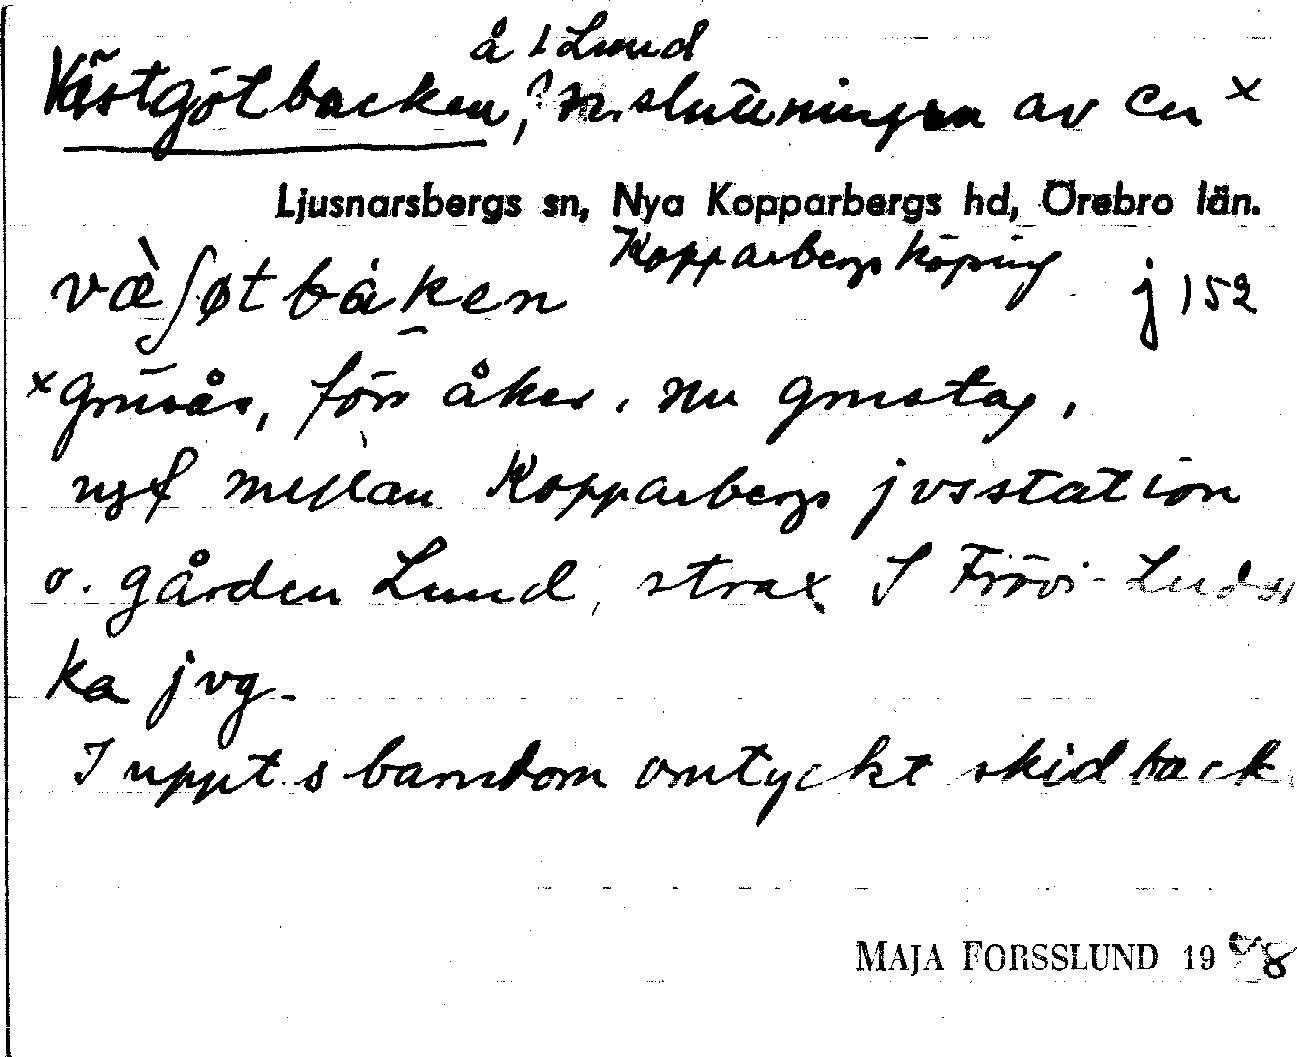 å 1 Lund
Västgötbacken, N. sluttningen av en x
Ljusnarsbergs sn, Nya Kopparbergs hd, Örebro län.
Kopparbergs köping
væ̀ʃøtbáken j 152
x grusås, förr åker, nu grustag,
ngf mellan Kopparbergs jvsstation
o. gården Lund, strax S Frövi-Ludvi
ka jvg.
I uppt s barndom omtyckt skidback
MAJA FORSSLUND 19